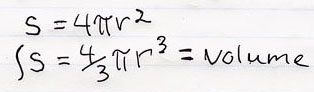 S = 4πr²
∫S = 4/3 πr³ = volume